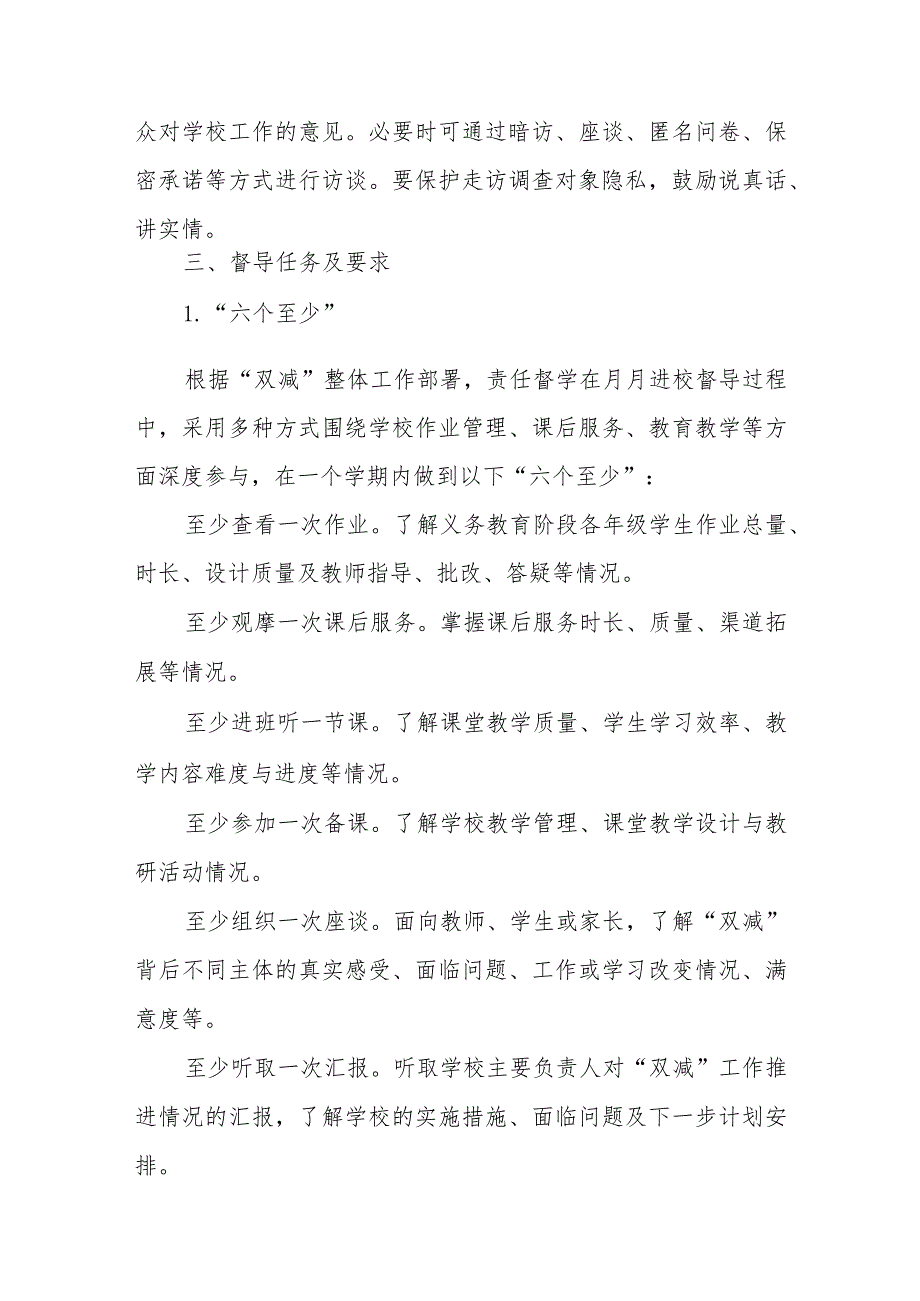 众对学校工作的意见。必要时可通过暗访、座谈、匿名问卷、保
密承诺等方式进行访谈。要保护走访调查对象隐私，鼓励说真话、
讲实情。
三、督导任务及要求
1.“六个至少”
根据“双减”整体工作部署，责任督学在月月进校督导过程
中，采用多种方式围绕学校作业管理、课后服务、教育教学等方
面深度参与，在一个学期内做到以下“六个至少”：
至少查看一次作业。了解义务教育阶段各年级学生作业总量、
时长、设计质量及教师指导、批改、答疑等情况。
至少观摩一次课后服务。掌握课后服务时长、质量、渠道拓
展等情况。
至少进班听一节课。了解课堂教学质量、学生学习效率、教
学内容难度与进度等情况。
至少参加一次备课。了解学校教学管理、课堂教学设计与教
研活动情况。
至少组织一次座谈。面向教师、学生或家长，了解“双减”
背后不同主体的真实感受、面临问题、工作或学习改变情况、满
意度等。
至少听取一次汇报。听取学校主要负责人对“双减”工作推
进情况的汇报，了解学校的实施措施、面临问题及下一步计划安
排。